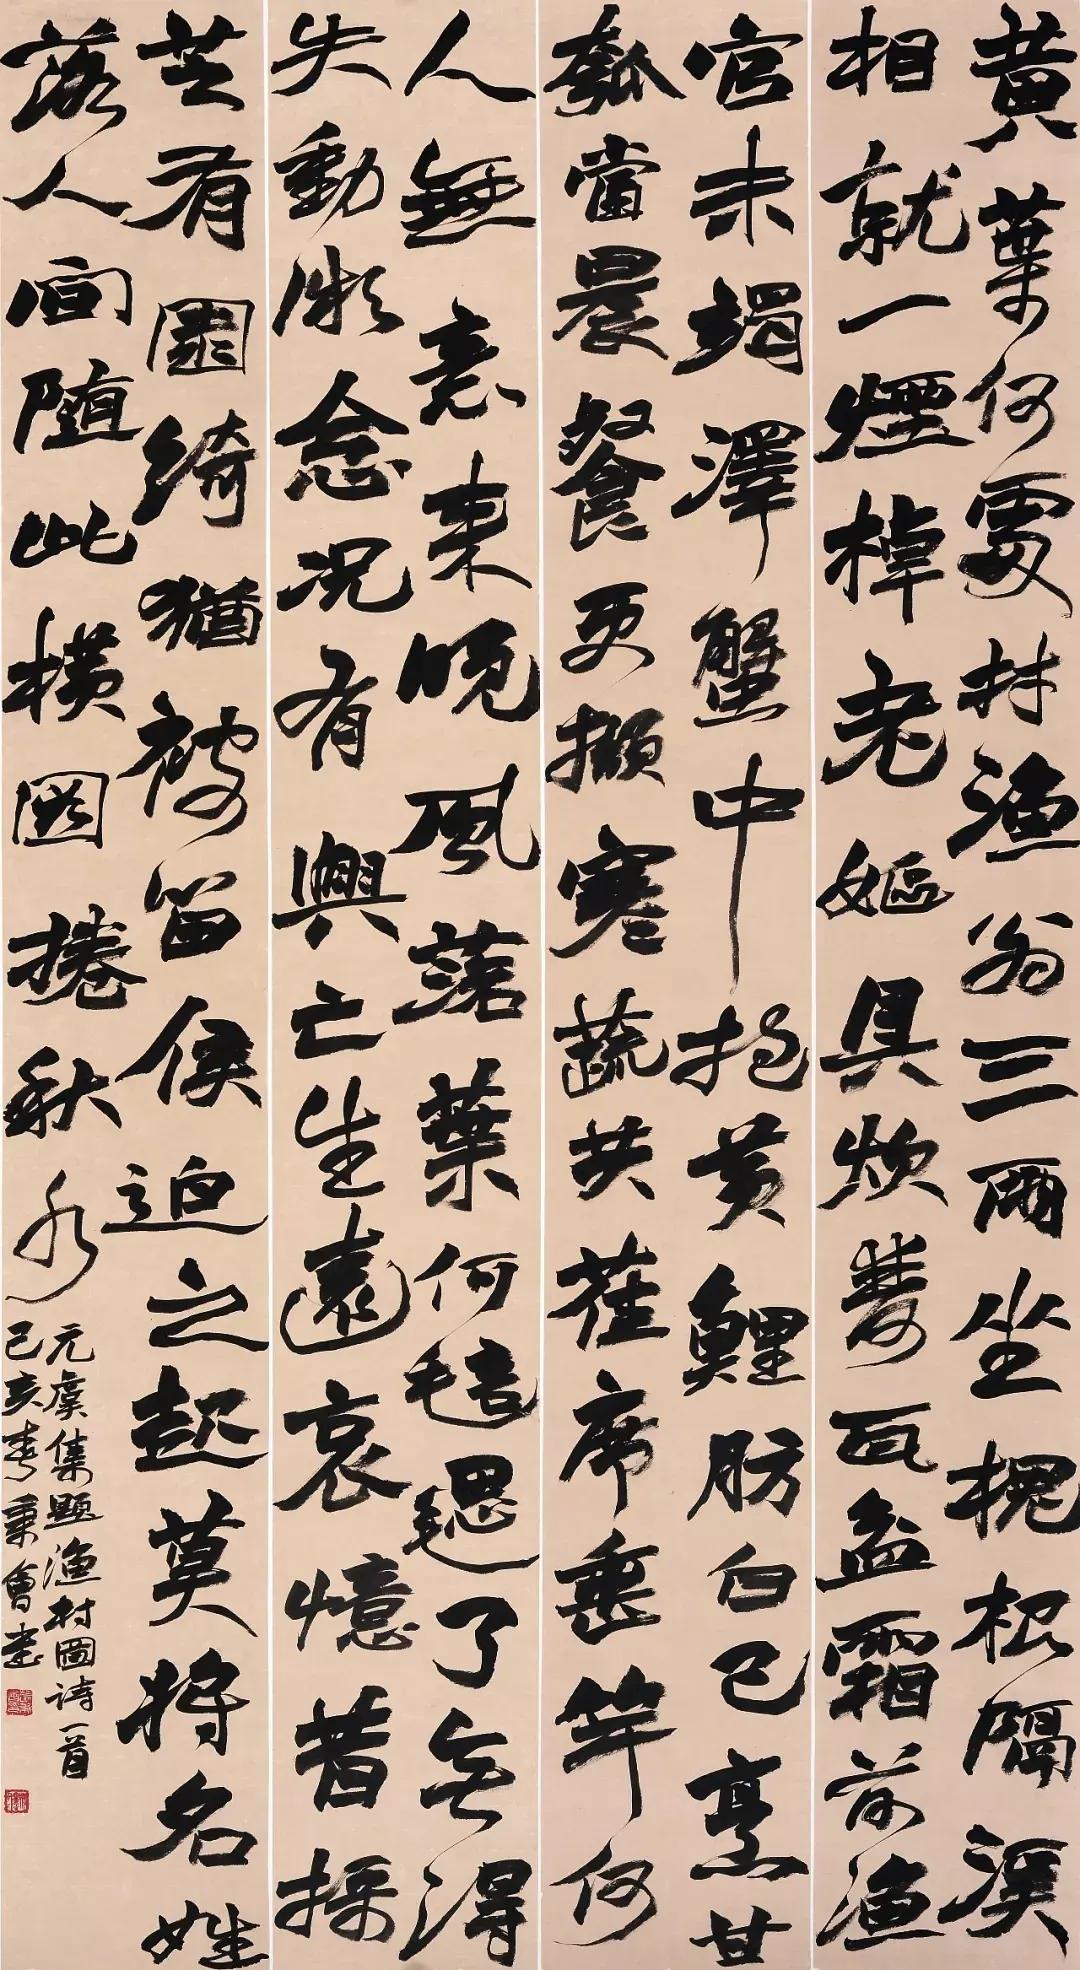 黄葉何處村漁翁三兩坐槐根隔溪
相就一煙棹老嫗具炊雙瓦盆霜前漁
官未竭澤蟹中抱黄鯉肪白已烹甘
瓠當晨餐更擷寒蔬共萑席垂竿何
人無意來晚風落葉何毰毸了無得
失動微念況有興亡生遠哀憶昔採
芝有園綺猶被留侯迫之起莫將名姓
落人間随此横圖捲秋水
元虞集題漁村圖詩一首
己亥春秉會書